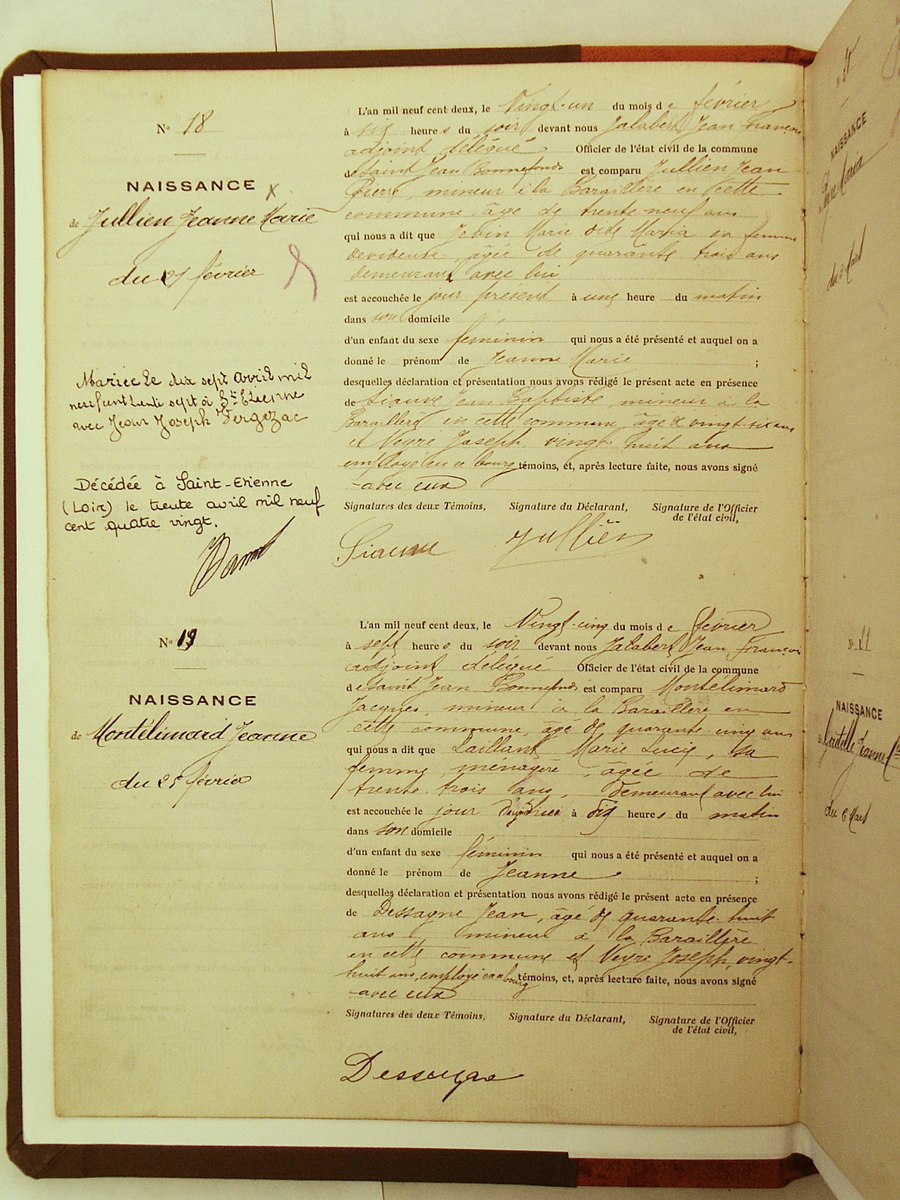 N° 18
NAISSANCE
de Jullien Jeanne Marie
du 21 février
Mariée le dix sept avril mil
neuf cent trente sept à St Etienne
avec Jean Joseph Vergezac
Décédée à Saint-Etienne
(Loire) le trente avril mil neuf
cent quatre vingt.
L'an mil neuf cent deux, le Vingt-un du mois de février
à six heures du soir devant nous Jalabert Jean François
adjoint délégué Officier de l'état civil de la commune
de Saint Jean Bonnefonds est comparu Jullien Jean
Pierre, mineur à la Baraillère en cette
commune, âgé de trente neuf ans
qui nous a dit que Marie sa femme
dévideuse, agée de quarante trois ans
demeurant avec lui
est accouchée le jour présent à une heure du matin
dans son domicile
d'un enfant du sexe féminin qui nous a été présenté et auquel on a
donné le prénom de Jeanne Marie ;
desquelles déclaration et présentation nous avons rédigé le présent acte en présence
de Siauve Jean Baptiste, mineur à la
Baraillère en cette commune, âgé de vingt-six ans
et Veyre Joseph, vingt-huit ans
employé en ce bourg témoins, et, après lecture faite, nous avons signé
avec eux
Signatures des deux Témoins, Signature du Déclarant, Signature de l'Officier
de l'état civil,
Siauve Jullien
N° 19
NAISSANCE
de Montélimard Jeanne
du 25 février
L'an mil neuf cent deux, le Vingt-cinq du mois de février
à sept heures du soir devant nous Jalabert Jean François
adjoint délégué Officier de l'état civil de la commune
de Saint Jean Bonnefonds est comparu Montélimard
Jacques, mineur à la Baraillère en
cette commune, âgé de quarante-cinq ans
qui nous a dit que Laillant Marie Lucie, sa
femme, ménagère, âgée de
trente-trois ans, demeurant avec lui
est accouchée le jour d'aujourd'hui à dix heures du matin
dans son domicile
d'un enfant du sexe féminin qui nous a été présenté et auquel on a
donné le prénom de Jeanne ;
desquelles déclaration et présentation nous avons rédigé le présent acte en présence
de Dessagne Jean, âgé de quarante-huit
ans, mineur à la Baraillère
en cette commune et Veyre Joseph, vingt-
huit ans, employé en ce bourg témoins, et, après lecture faite, nous avons signé
avec eux
Signatures des deux Témoins, Signature du Déclarant, Signature de l'Officier
de l'état civil,
Dessagne
NAISSANCE
N° 21
NAISSANCE
Jeanne
du 6 Mars